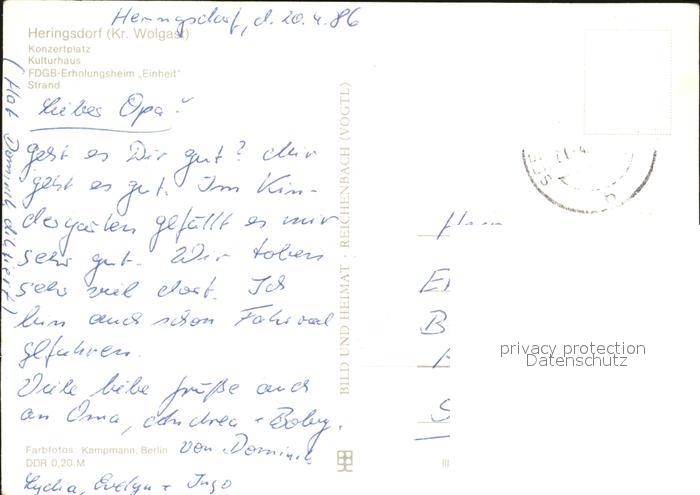 Heringsdorf, d. 20.4.86
Heringsdorf (Kr. Wolgast)
Konzertplatz
Kulturhaus
FDGB-Erholungsheim „Einheit"
Strand
Lieber Opa!
geht es Dir gut? Mir
geht es gut. Im Kin-
dergarten gefällt es mir
sehr gut. Wir toben
sehr viel dort. Ich
bin auch schon Fahrrad
gefahren.
Viele liebe Grüße auch
an Oma, Andrea + Boby.
von Dominik
Lydia, Evelyn + Ingo
(Hat Dominik diktiert)
Farbfotos: Kampmann, Berlin
DDR 0,20 M
BILD UND HEIMAT · REICHENBACH (VOGTL)
III
Herrn
privacy protection
Datenschutz